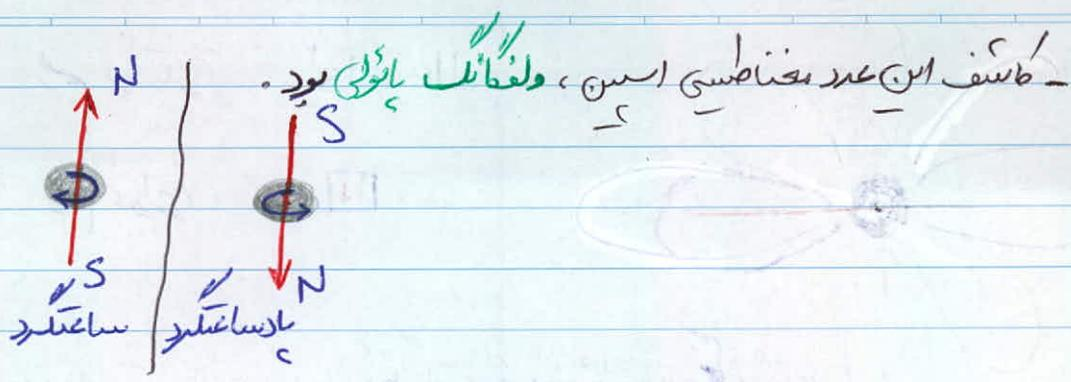 - کاشف این عدد مغناطیسی اسپین، ولفگانگ پائولی بود.
N
S
S
N
ساعتگرد
پادساعتگرد